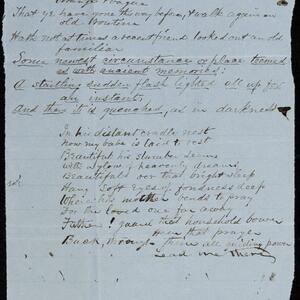 Strange & vague
That ye have gone this way before, & walk again an
old Routine
Hath not at times a recent friend looked out an old
familiar
Some newest circumstance or place teemed
as with ancient memories?
A startling sudden flash lighted all up for
an instant,
And then it is quenched, as in darkness
In his distant cradle nest
Now my babe is laid to rest
Beautiful his slumber seems
With a glow of heavenly dreams
Beautiful o'er that bright sleep
Hang soft Eyes of fondness deep
Where his mother bends to pray
For the loved one far away
Father! guard that household bower
Hear that prayer
Back, through thine all guiding power
Lead me There